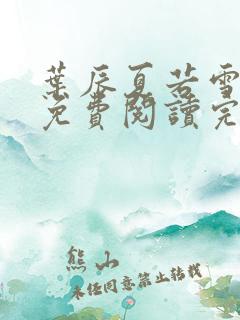 葉辰夏若雪
免費閱讀完
熊山
未任同意禁止转载